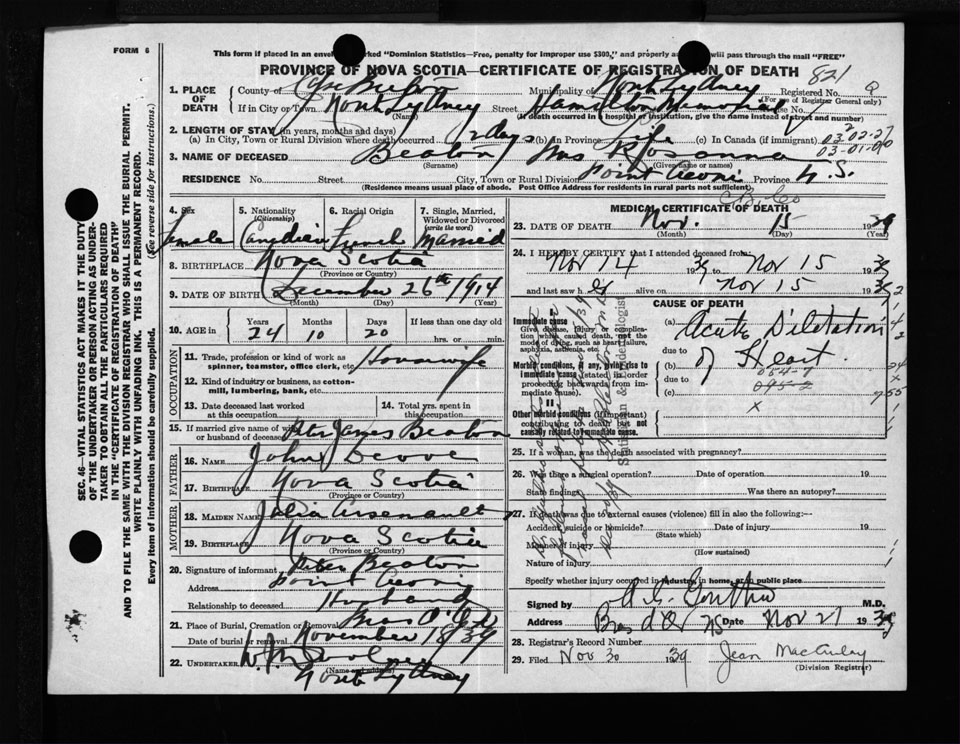 FORM 6
This form if placed in an envelope marked "Dominion Statistics—Free, penalty for improper use $300," and properly will pass through the mail "FREE"
PROVINCE OF NOVA SCOTIA—CERTIFICATE OF REGISTRATION OF DEATH
821
1. PLACE OF DEATH County of Cape Breton Municipality of North Sydney Registered No.
(For use of Registrar General only)
If in City or Town North Sydney Street Hamilton Memorial House No.
(Name) (If death occurred in a hospital or institution, give the name instead of street and number)
2. LENGTH OF STAY (in years, months and days)
(a) In City, Town or Rural Division where death occurred 2 days (b) in Province Life (c) In Canada (if immigrant)
03-02-27
03-01-00
3. NAME OF DECEASED Beaton Mrs Rosanna
(Surname) (Given name or names)
RESIDENCE No. Street City, Town or Rural Division Point Aconi Province N.S.
(Residence means usual place of abode. Post Office Address for residents in rural parts not sufficient)
C.B. Co
4. Sex Female
5. Nationality (Citizenship) Canadian
6. Racial Origin French
7. Single, Married, Widowed or Divorced (write the word) Married
8. BIRTHPLACE Nova Scotia
(Province or Country)
9. DATE OF BIRTH December 26th 1914
(Month) (Day) (Year)
10. AGE in Years Months Days If less than one day
24 10 20 hrs. or min.
OCCUPATION
11. Trade, profession or kind of work as spinner, teamster, office clerk, etc. Housewife
12. Kind of industry or business, as cotton-mill, lumbering, bank, etc.
13. Date deceased last worked at this occupation
14. Total yrs. spent in this occupation
15. If married give name of wife or husband of deceased Peter James Beaton
FATHER
16. NAME John
17. BIRTHPLACE Nova Scotia
(Province or Country)
MOTHER
18. MAIDEN NAME Julia Arsenault
19. BIRTHPLACE Nova Scotia
(Province or Country)
20. Signature of informant Peter Beaton
Address Point Aconi
Relationship to deceased Husband
21. Place of Burial, Cremation or Removal Bras D'Or
Date of burial or removal November 18 39
22. UNDERTAKER
(Name and address)
North Sydney
MEDICAL CERTIFICATE OF DEATH
23. DATE OF DEATH Nov. 15 1939
(Month) (Day) (Year)
24. I HEREBY CERTIFY that I attended deceased from:
Nov 14 1939 to Nov 15 1939
and last saw her alive on Nov 15 1939
CAUSE OF DEATH
I.
Immediate cause
Give disease, injury or complication which caused death, not the mode of dying, such as heart failure, asphyxia, asthenia, etc.
(a) Acute Dilatation
due to
Morbid conditions, if any, giving rise to immediate cause (stated in order proceeding backwards from immediate cause).
(b) of Heart
due to
(c)
II.
Other morbid conditions (if important) contributing to death but not causally related to immediate cause.
x
25. If a woman, was the death associated with pregnancy?
26. Was there a surgical operation? Date of operation 19
State findings Was there an autopsy?
27. If death was due to external causes (violence) fill in also the following:—
Accident, suicide or homicide? Date of injury 19
(State which)
Manner of injury
(How sustained)
Nature of injury
Specify whether injury occurred in industry, in home, or in public place
Signed by M.D.
Address Bras d'Or Date Nov 21 1939
28. Registrar's Record Number 75
29. Filed Nov 30 1939
(Division Registrar)
SEC. 46—VITAL STATISTICS ACT MAKES IT THE DUTY
OF THE UNDERTAKER OR PERSON ACTING AS UNDER-
TAKER TO OBTAIN ALL THE PARTICULARS REQUIRED
IN THE "CERTIFICATE OF REGISTRATION OF DEATH"
AND TO FILE THE SAME WITH THE DIVISION REGISTRAR WHO SHALL ISSUE THE BURIAL PERMIT.
WRITE PLAINLY WITH UNFADING INK. THIS IS A PERMANENT RECORD.
Every item of information should be carefully supplied. (See reverse side for instructions.)